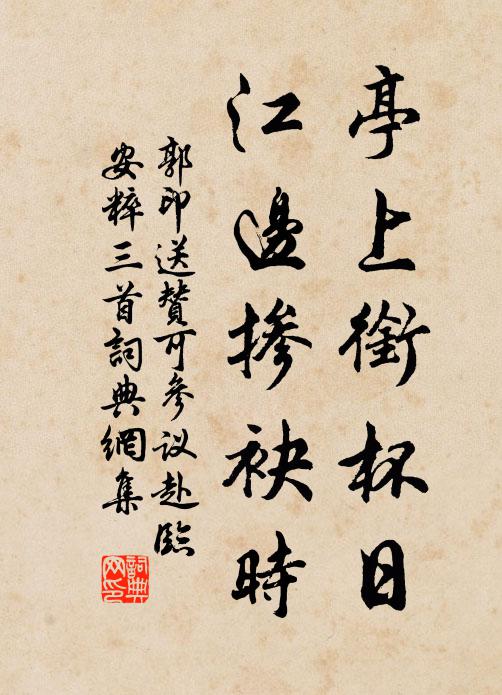 亭上銜杯日
江邊掺袂時
郭印送賛可參议赴臨
安粹三首詞典網集
詞典
网印